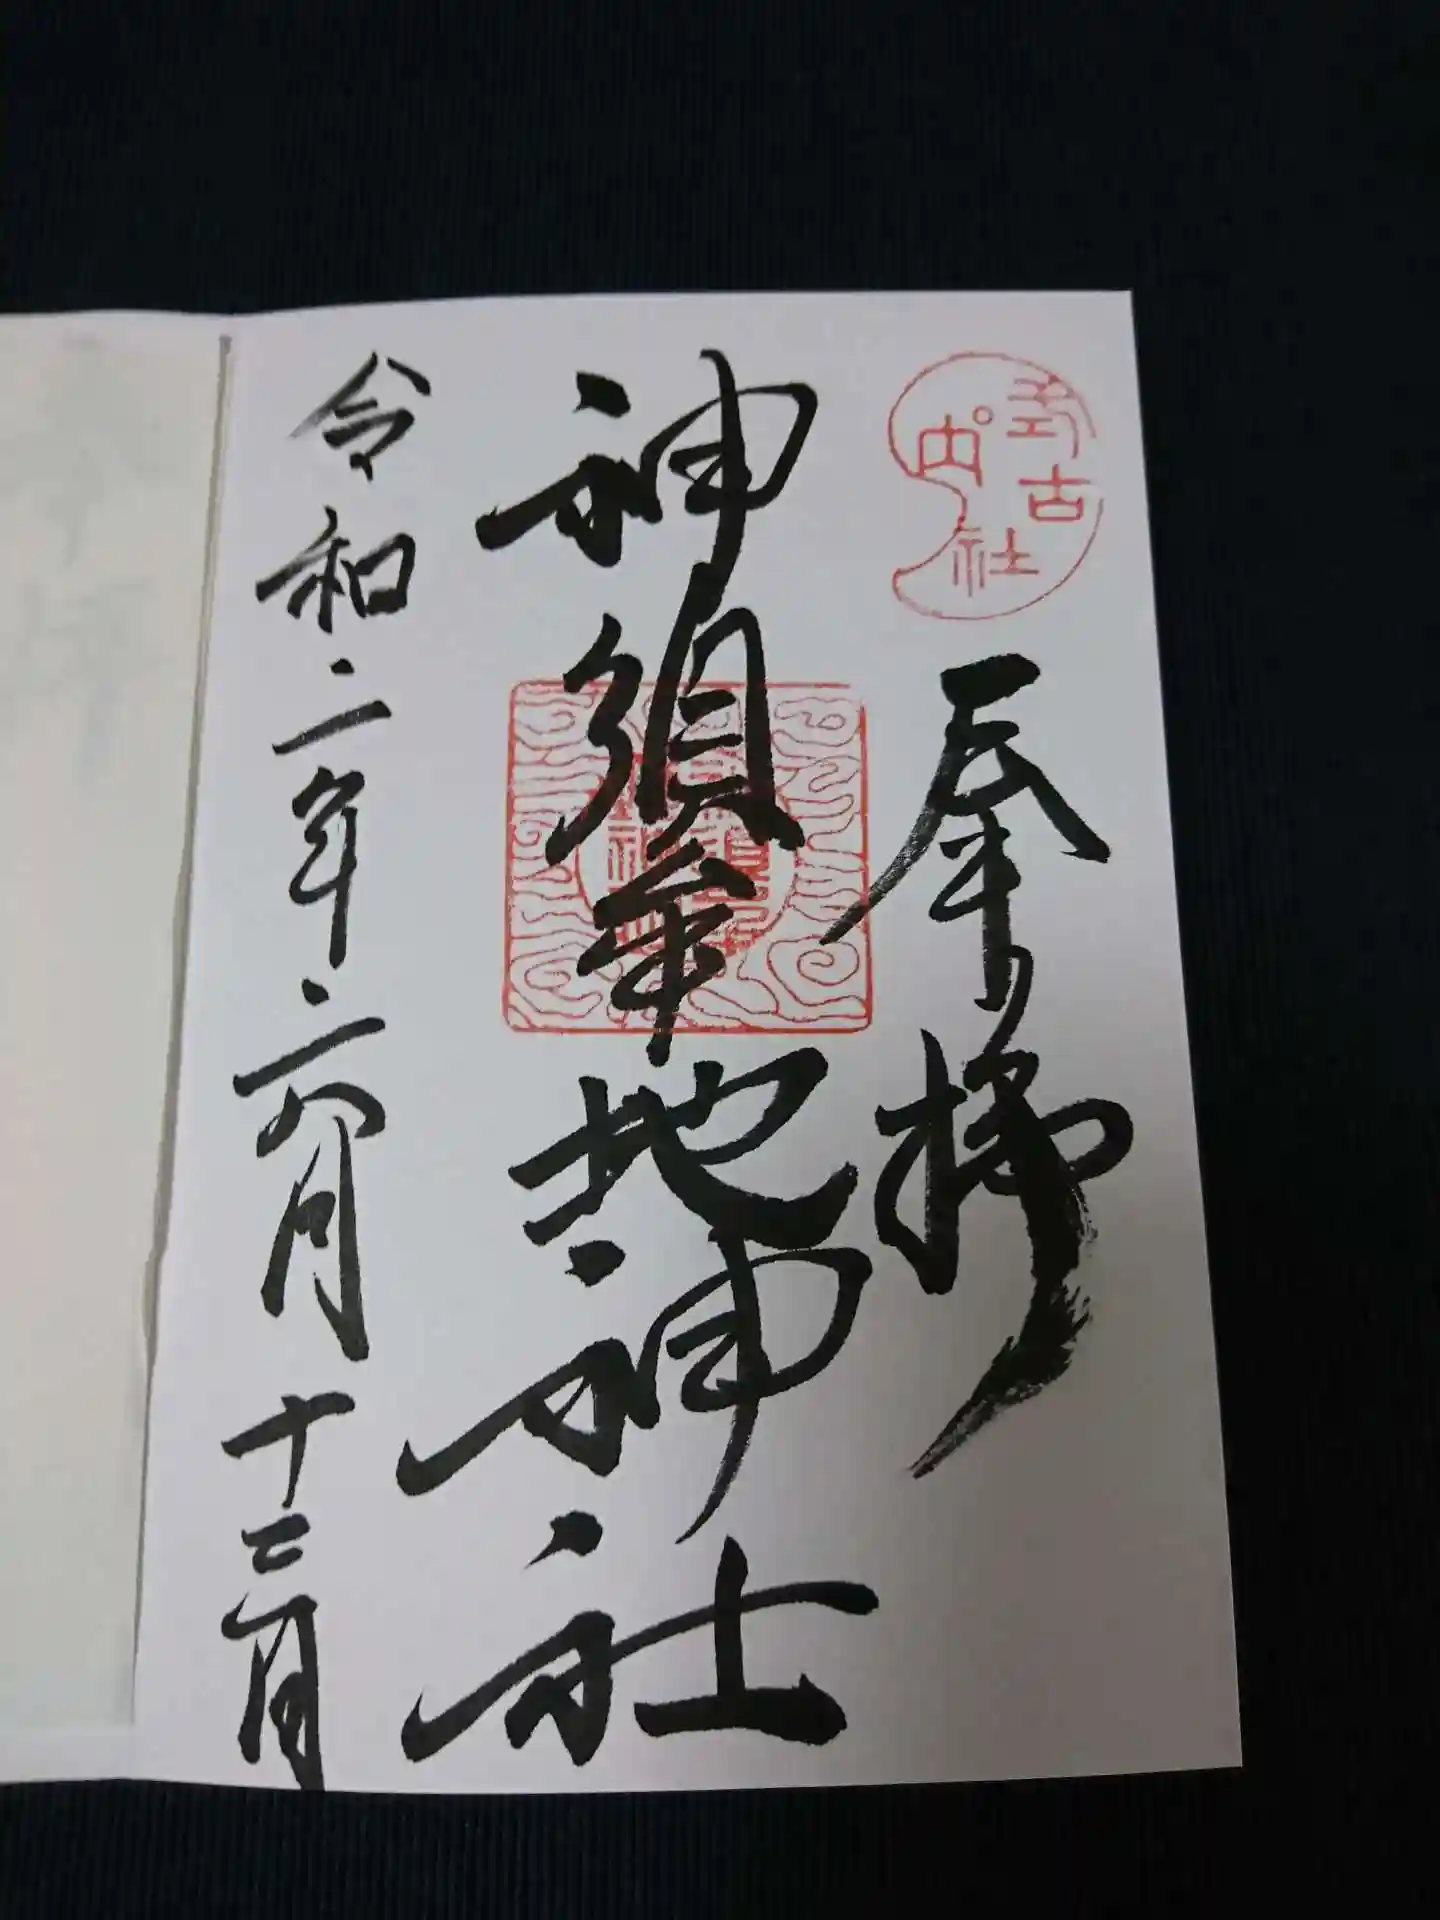 式内古社
奉拝
神須牟地神社
令和二年六月十三日